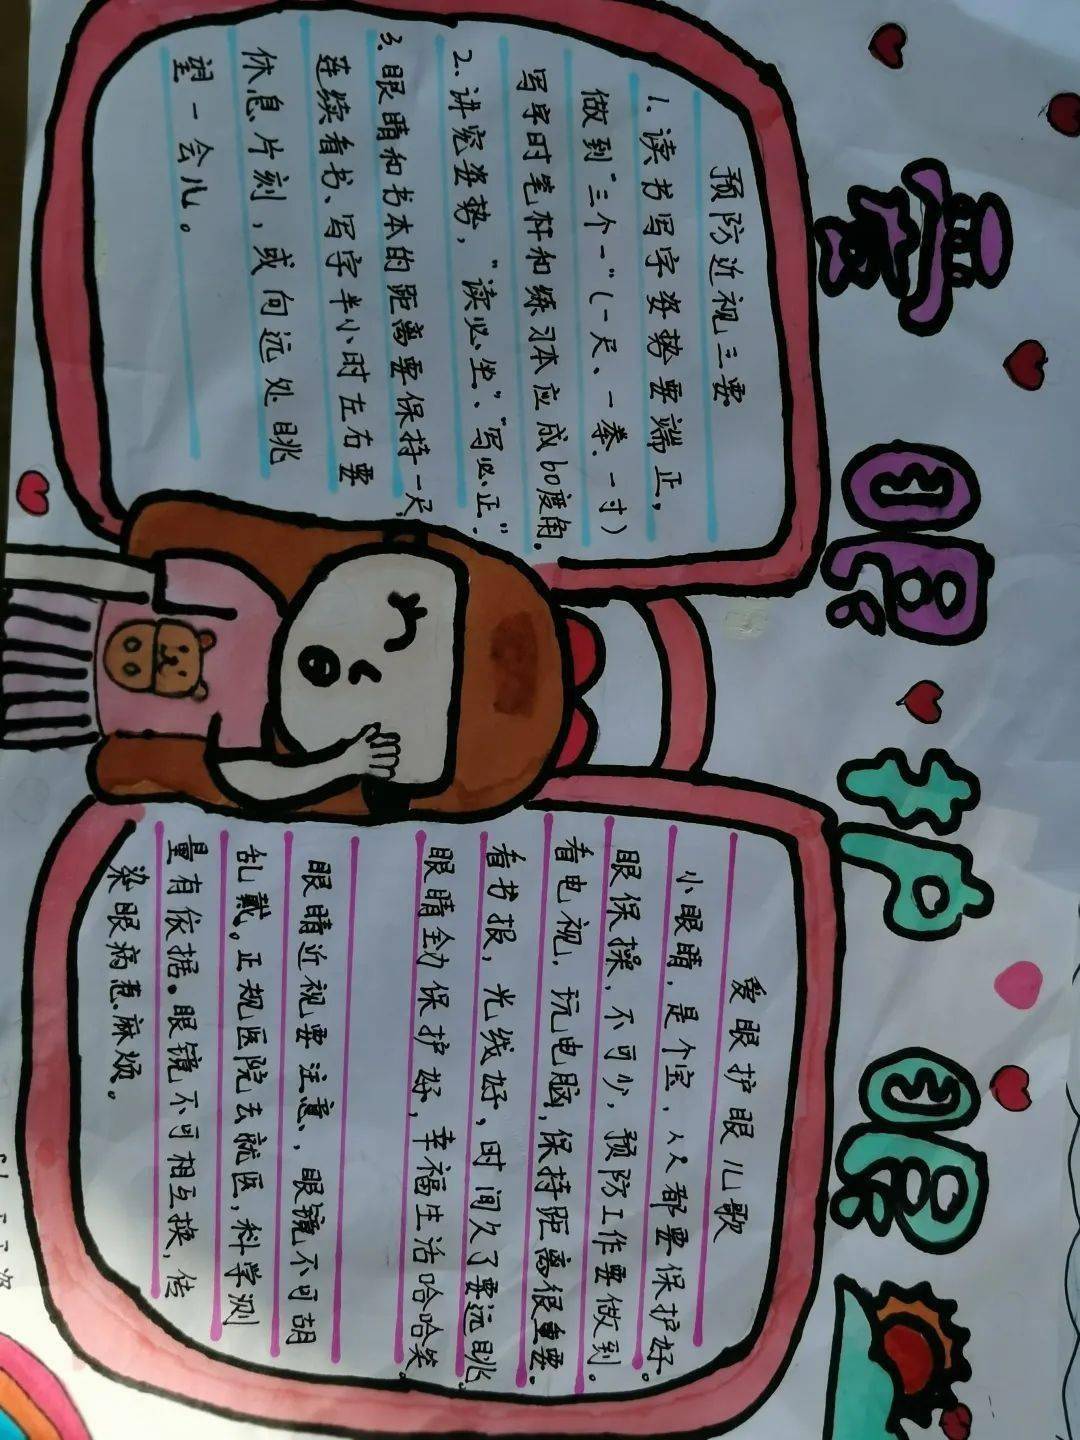 爱眼护眼
预防近视三要
1.读书写字姿势要端正,
做到"三个一"(一尺、一拳、一寸)
写字时笔杆和练习本应成60度角.
2.讲究姿势,"读必坐"、"写必正".
3.眼睛和书本的距离要保持一尺,
连续看书、写字半小时左右要
休息片刻,或向远处眺
望一会儿。
爱眼护眼儿歌
小眼睛,是个宝,人人都要保护好。
眼保操,不可少,预防工作要做到。
看电视,玩电脑,保持距离很重要。
看书报,光线好,时间久了要远眺。
眼睛全力保护好,幸福生活哈哈笑。
眼睛近视要注意,眼镜不可胡
乱戴。正规医院去就医,科学测
量有依据。眼镜不可相互换,传
染眼病惹麻烦。